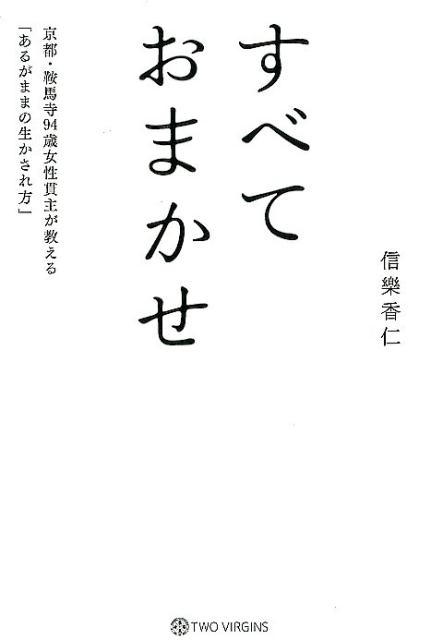 信樂香仁
すべて
おまかせ
京都・鞍馬寺94歳女性貫主が教える
「あるがままの生かされ方」
TWO VIRGINS